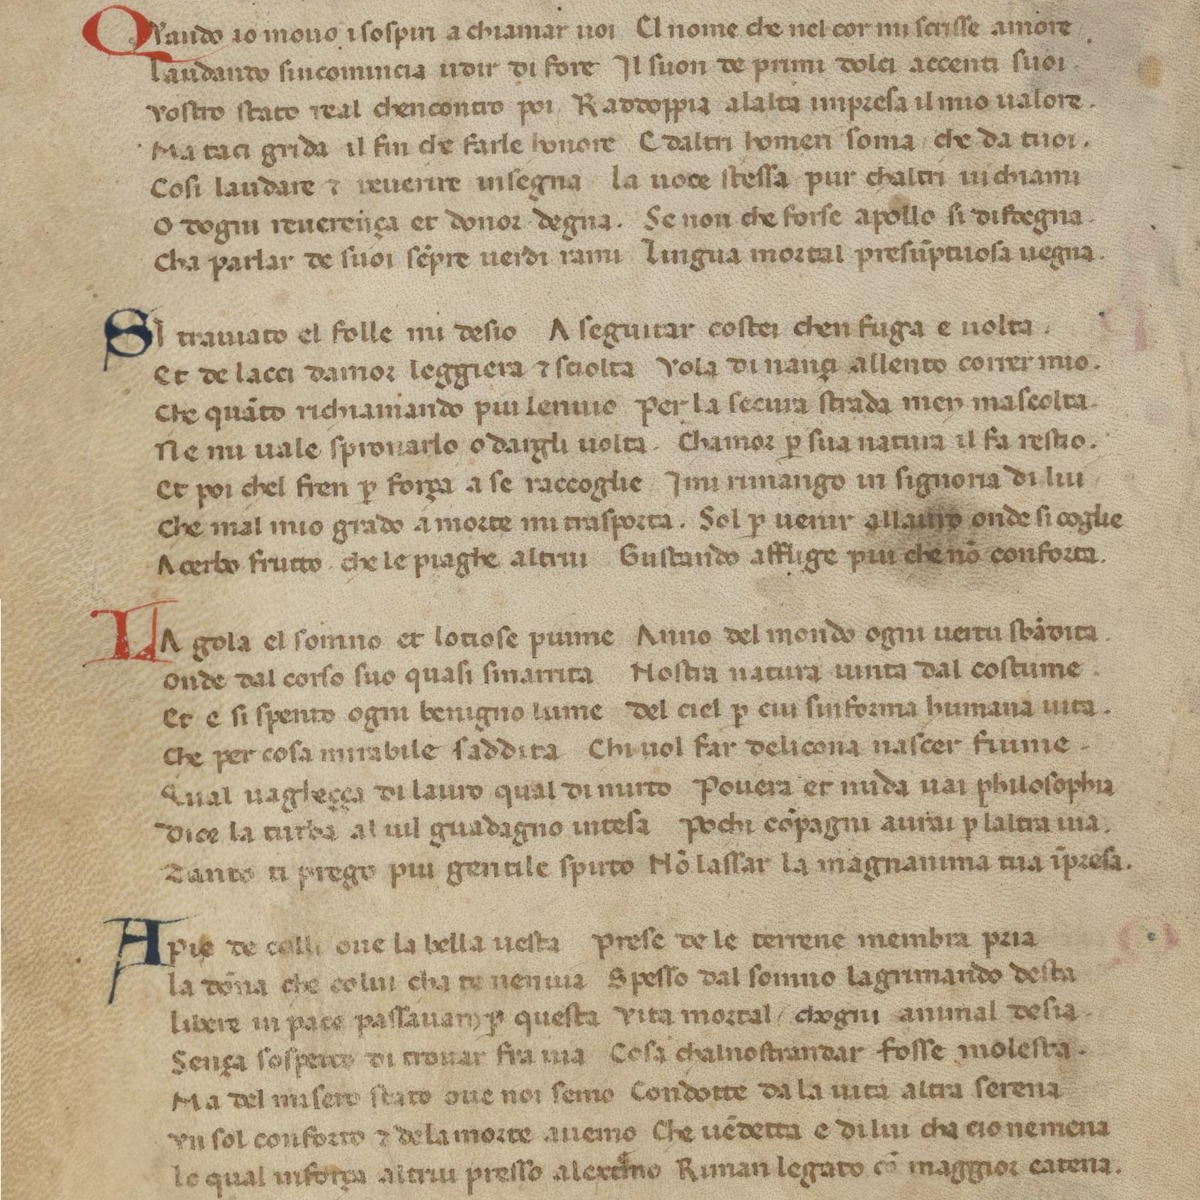 Quando io mouo i sospiri a chiamar uoi El nome che nel cor mi scrisse amore
Laudando sincomincia udir di fore Il suon de primi dolci accenti suoi.
Vostro stato real chencontro poi Raddoppia alalta impresa il mio ualore.
Ma taci grida il fin che farle honore E daltri homeri soma che da tuoi.
Cosi laudare ⁊ reuerire insegna La uoce stessa pur chaltri ui chiami
O dogni reuerença et donor degna. Se non che forse apollo si disdegna
Cha parlar de suoi sẽpre uerdi rami Lingua mortal presũptuosa uegna.
SI trauiato el folle mi desio A seguitar costei chen fuga e uolta.
Et de lacci damor leggiera ⁊ sciolta Vola dinançi allento correr mio.
Che quãto richiamando piu lenuio Per la secura strada men mascolta.
Ne mi uale spronarlo o dargli uolta. Chamor ꝑ sua natura il fa restio.
Et poi chel fren ꝑ força a se raccoglie Imi rimango in signoria di lui
Che mal mio grado a morte mi trasporta. Sol ꝑ uenir allauro onde si coglie
Acerbo frutto che le piaghe altrui Gustando afflige piu che nõ conforta.
LA gola el somno et lociose piume Anno del mondo ogni uertu sbãdita.
Onde dal corso suo quasi smarrita Nostra natura uinta dal costume
Et e si spento ogni benigno lume del ciel ꝑ cui sinforma humana uita.
Che per cosa mirabile saddita Chi uol far delicona nascer fiume.
Qual uagheçça di lauro qual di mirto Pouera et nuda uai philosophia
Dice la turba al uil guadagno intesa Pochi cõpagni aurai ꝑ laltra uia.
Tanto ti prego piu gentile spirto Nõ lassar la magnanima tua ĩpresa.
A pie de colli oue la bella uesta Prese de le terrene membra pria
La dõna che colui cha te nenuia Spesso dal somno lagrimando desta
Libere in pace passauam ꝑ questa Vita mortal / chogni animal desia.
Sença sospetto di trouar fra uia Cosa chalnostrandar fosse molesta.
Ma del misero stato oue noi semo Condotte da la uita altra serena
Vn sol conforto ⁊ dela morte auemo Che uẽdetta e di lui cha cio nemena
Lo qual in força altrui presso alextremo Riman legato cõ maggior catena.